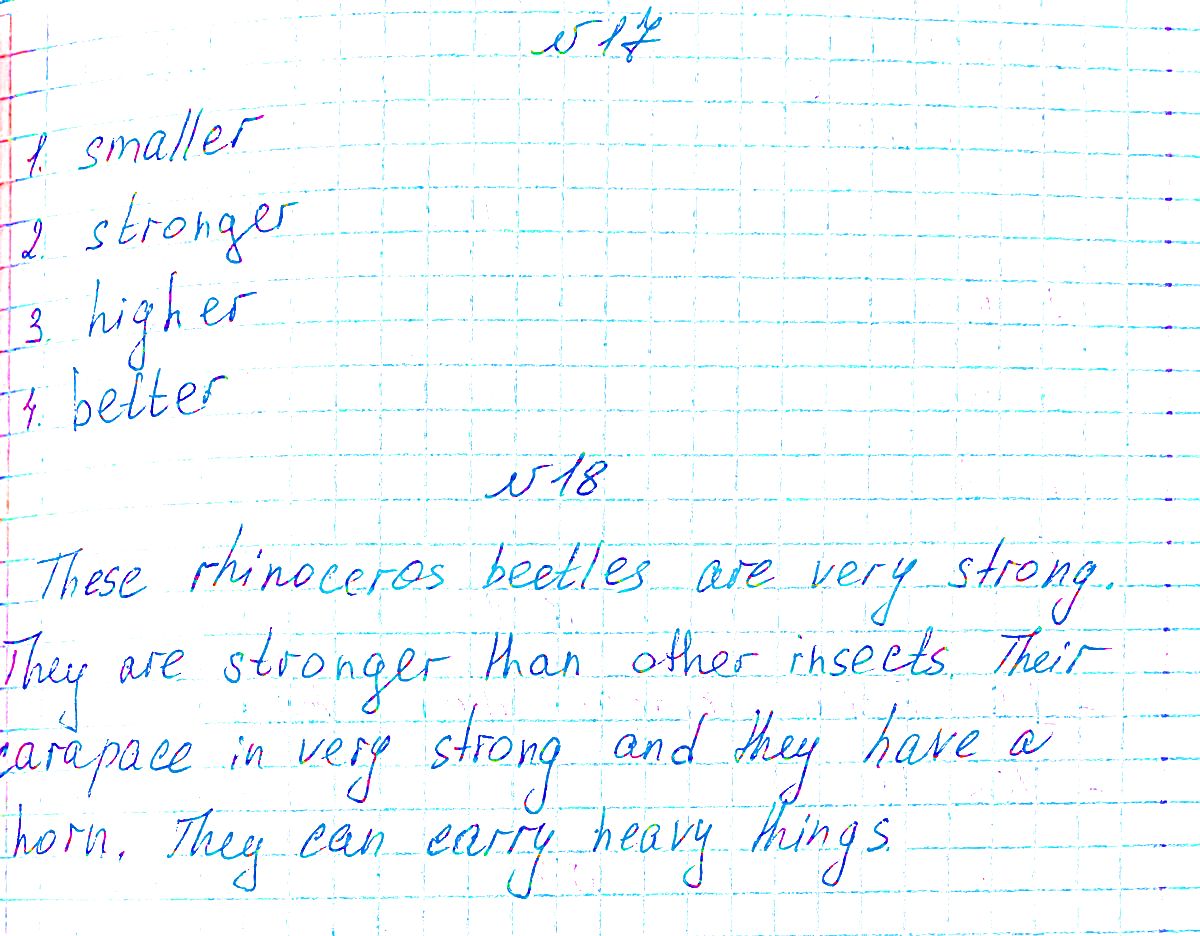 №17
1. smaller
2. stronger
3. higher
4. better
№18
These rhinoceros beetles are very strong.
They are stronger than other insects. Their
carapace in very strong and they have a
horn. They can carry heavy things.